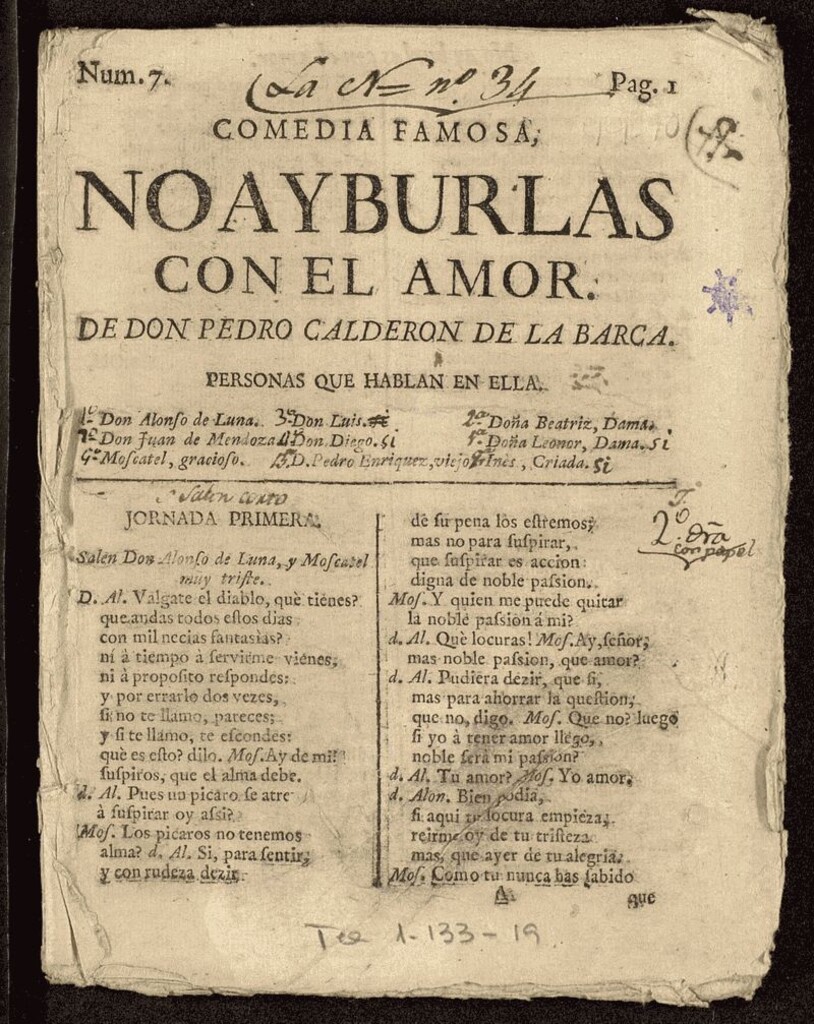 Num. 7.
La N= nº. 34
Pag. 1
COMEDIA FAMOSA,
NO AY BURLAS
CON EL AMOR.
DE DON PEDRO CALDERON DE LA BARCA.
PERSONAS QUE HABLAN EN ELLA.
1º Don Alonſo de Luna. 3º Don Luis. 2ª Doña Beatriz, Dama.
2º Don Juan de Mendoza Don Diego. si 1ª Doña Leonor, Dama. si
Gº Moſcatel, gracioſo. D. Pedro Enriquez, viejo Inès, Criada. si
Salen
JORNADA PRIMERA.
Salen Don Alonſo de Luna, y Moſcatel
muy triſte.
D. Al. Valgate el diablo, què tienes?
que andas todos eſtos dias
con mil necias fantasias?
ni à tiempo à ſervirme vienes,
ni à propoſito reſpondes:
y por errarlo dos vezes,
ſi no te llamo, pareces;
y ſi te llamo, te eſcondes:
què es eſto? dilo. Moſ. Ay de mi!
ſuſpiros, que el alma debe.
d. Al. Pues un picaro ſe atre
à ſuſpirar oy aſsi?
Moſ. Los picaros no tenemos
alma? d. Al. Si, para ſentir,
y con rudeza dezir
de ſu pena los eſtremos;
mas no para ſuſpirar,
que ſuſpirar es accion
digna de noble paſsion.
Moſ. Y quien me puede quitar
la noble paſsion à mi?
d. Al. Què locuras! Moſ. Ay, ſeñor;
mas noble paſsion, que amor?
d. Al. Pudiera dezir, que ſi,
mas para ahorrar la queſtion,
que no, digo. Moſ. Que no? luego
ſi yo à tener amor llego,
noble ſerà mi paſsion?
d. Al. Tu amor? Moſ. Yo amor.
d. Alon. Bien podia,
ſi aqui tu locura empieza,
reirme oy de tu triſteza
mas, que ayer de tu alegria.
Moſ. Como tu nunca has ſabido
A
que
2º
con papel
Tea 1-133-19